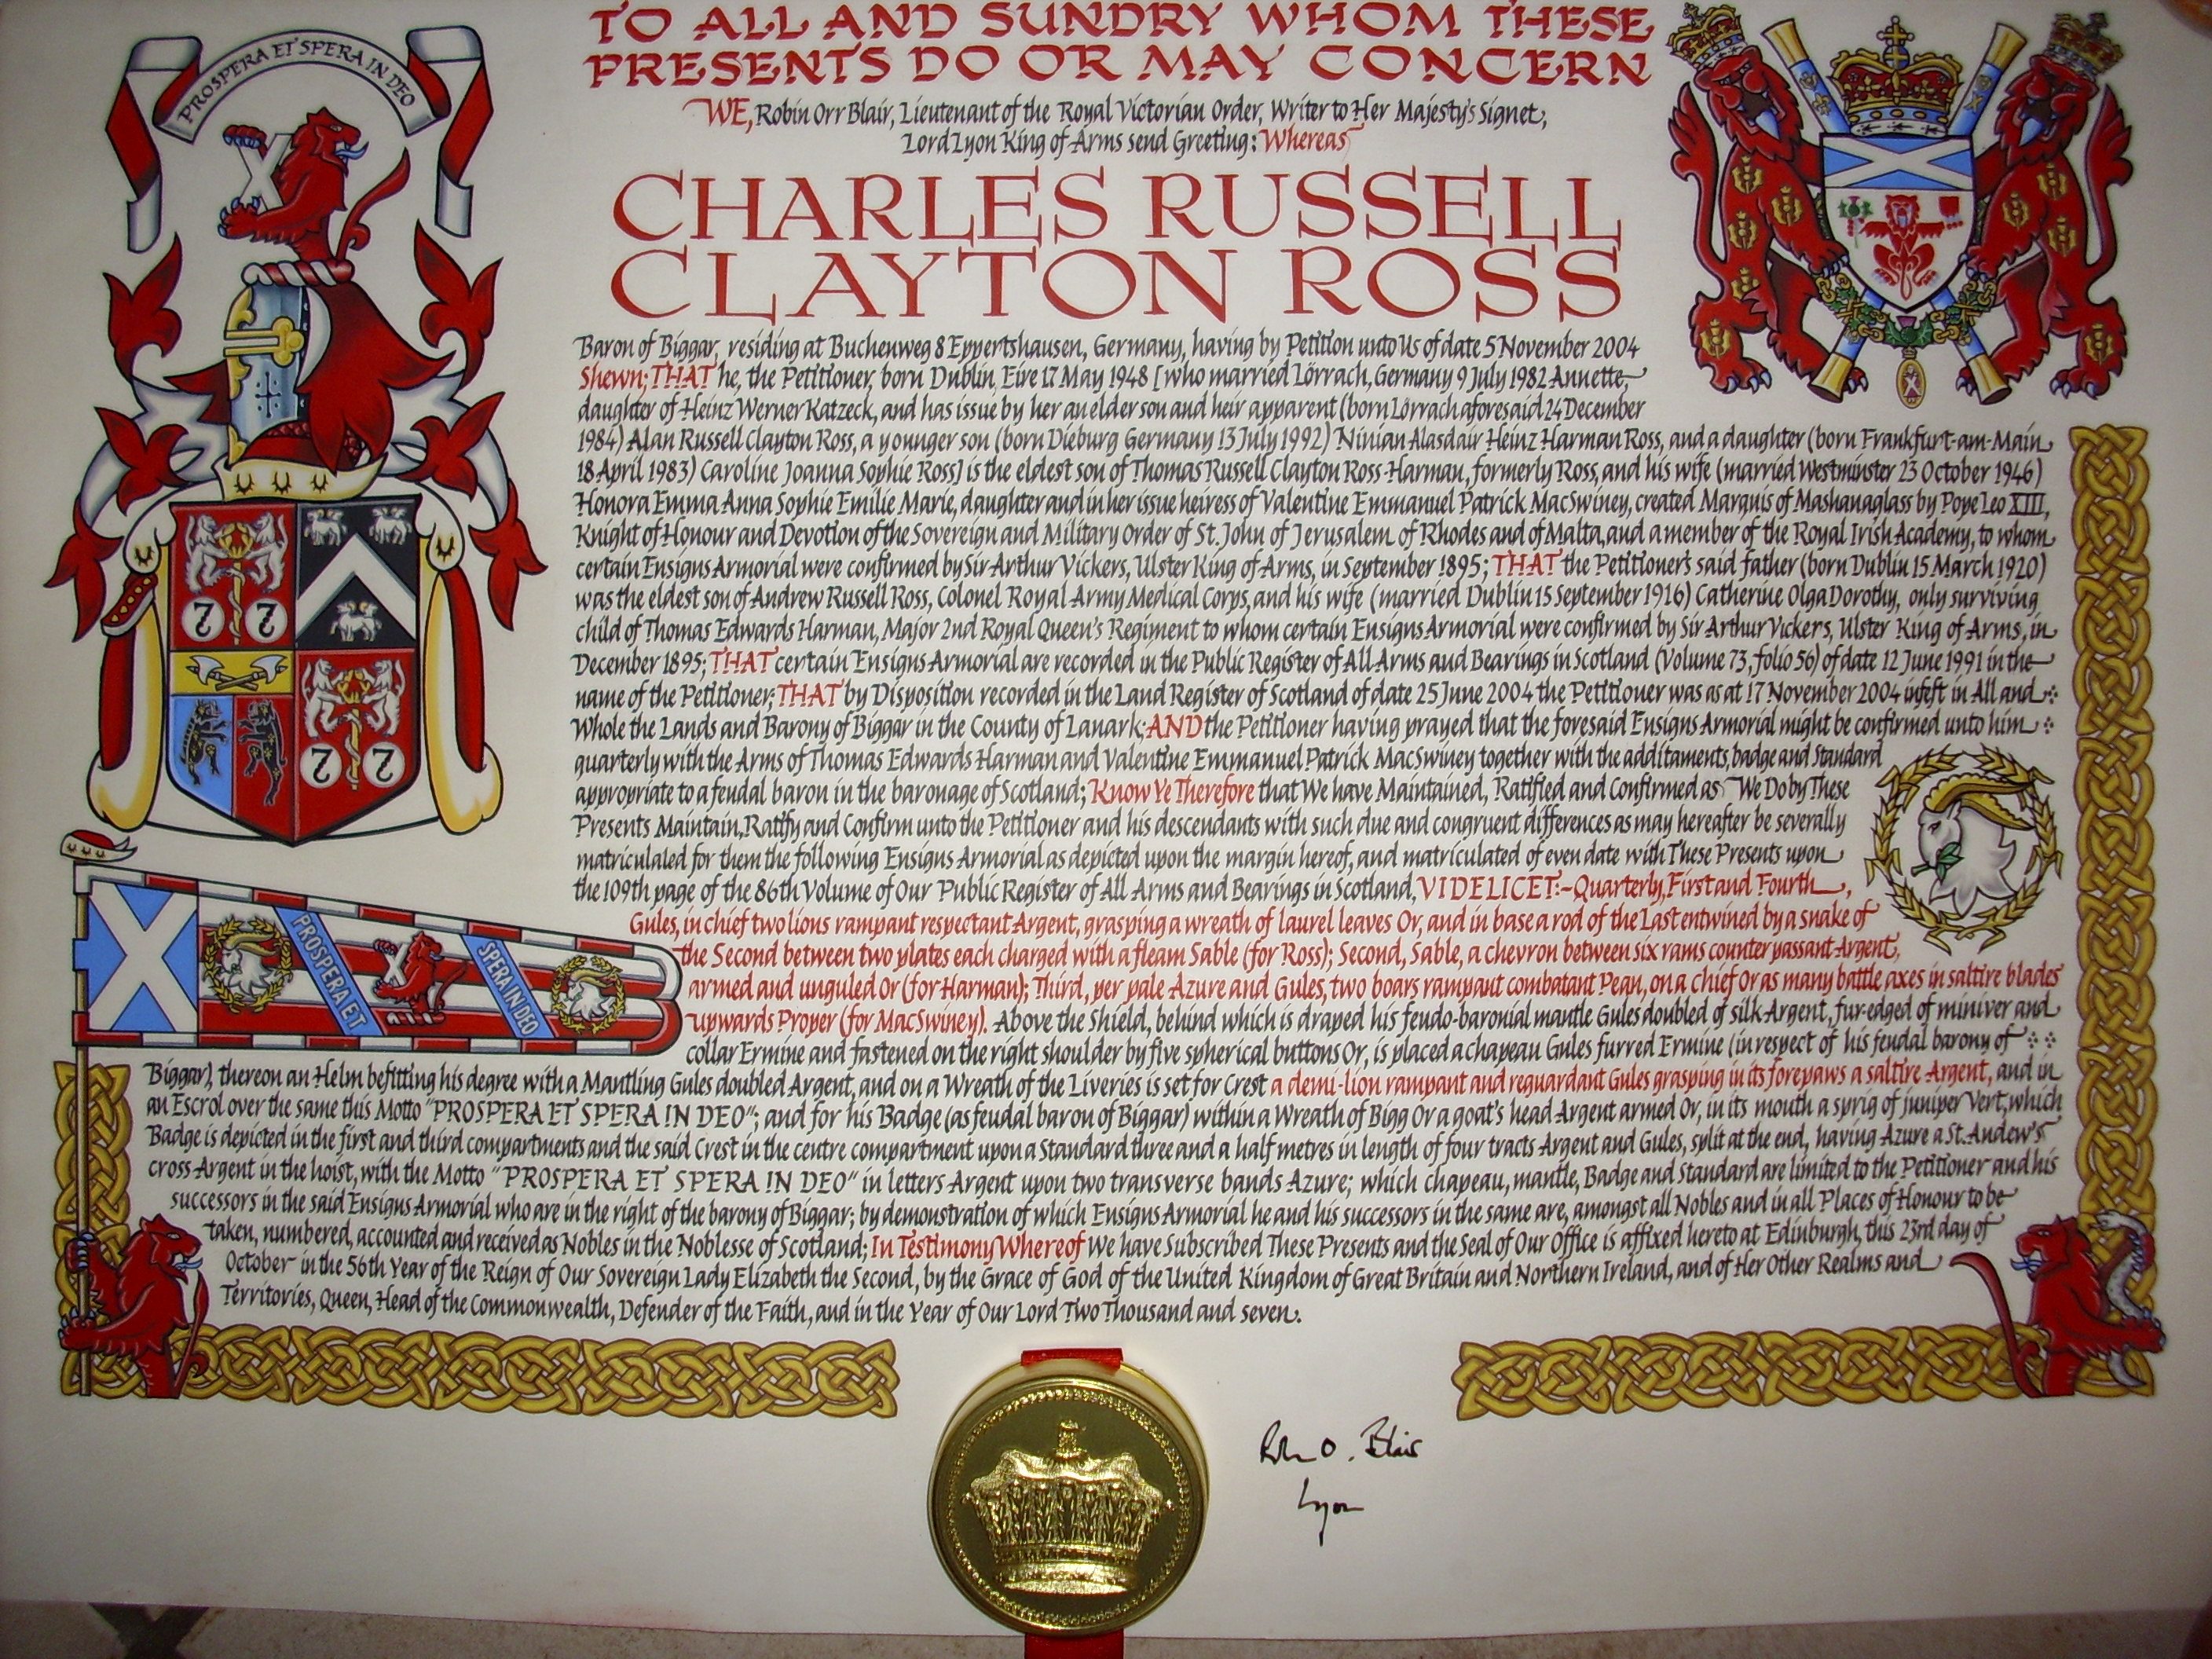 PROSPERA ET SPERA IN DEO
TO ALL AND SUNDRY WHOM THESE
PRESENTS DO OR MAY CONCERN
WE, Robin Orr Blair, Lieutenant of the Royal Victorian Order, Writer to Her Majesty's Signet,
Lord Lyon King of Arms send Greeting: Whereas
CHARLES RUSSELL
CLAYTON ROSS
Baron of Biggar, residing at Buchenweg 8 Eppertshausen, Germany, having by Petition unto Us of date 5 November 2004
Shewn; THAT he, the Petitioner, born Dublin, Eire 17 May 1948 [who married Lörrach, Germany 9 July 1982 Annette,
daughter of Heinz Werner Katzeck, and has issue by her an elder son and heir apparent (born Lörrach aforesaid 24 December
1984) Alan Russell Clayton Ross, a younger son (born Dieburg Germany 13 July 1992) Ninian Alasdair Heinz Harman Ross, and a daughter (born Frankfurt-am-Main
18 April 1983) Caroline Joanna Sophie Ross] is the eldest son of Thomas Russell Clayton Ross-Harman, formerly Ross, and his wife (married Westminster 23 October 1946)
Honora Emma Anna Sophie Emilie Marie, daughter and in her issue heiress of Valentine Emmanuel Patrick MacSwiney, created Marquis of Mashanaglass by Pope Leo XIII,
Knight of Honour and Devotion of the Sovereign and Military Order of St. John of Jerusalem, of Rhodes and of Malta, and a member of the Royal Irish Academy, to whom
certain Ensigns Armorial were confirmed by Sir Arthur Vickers, Ulster King of Arms, in September 1895; THAT the Petitioner's said father (born Dublin 15 March 1920)
was the eldest son of Andrew Russell Ross, Colonel Royal Army Medical Corps, and his wife (married Dublin 15 September 1916) Catherine Olga Dorothy, only surviving
child of Thomas Edwards Harman, Major 2nd Royal Queen's Regiment to whom certain Ensigns Armorial were confirmed by Sir Arthur Vickers, Ulster King of Arms, in
December 1895; THAT certain Ensigns Armorial are recorded in the Public Register of All Arms and Bearings in Scotland (Volume 73, folio 56) of date 12 June 1991 in the
name of the Petitioner; THAT by Disposition recorded in the Land Register of Scotland of date 25 June 2004 the Petitioner was as at 17 November 2004 infeft in All and
Whole the Lands and Barony of Biggar in the County of Lanark; AND the Petitioner having prayed that the foresaid Ensigns Armorial might be confirmed unto him
quarterly with the Arms of Thomas Edwards Harman and Valentine Emmanuel Patrick MacSwiney together with the additaments, badge and Standard
appropriate to a feudal baron in the baronage of Scotland; Know Ye Therefore that We have Maintained, Ratified and Confirmed as We Do by These
Presents Maintain, Ratify and Confirm unto the Petitioner and his descendants with such due and congruent differences as may hereafter be severally
matriculated for them the following Ensigns Armorial as depicted upon the margin hereof, and matriculated of even date with These Presents upon
the 109th page of the 86th Volume of Our Public Register of All Arms and Bearings in Scotland, VIDELICET:- Quarterly, First and Fourth,
Gules, in chief two lions rampant respectant Argent, grasping a wreath of laurel leaves Or, and in base a rod of the Last entwined by a snake of
the Second between two plates each charged with a fleam Sable (for Ross); Second, Sable, a chevron between six rams counter passant Argent,
armed and unguled Or (for Harman); Third, per pale Azure and Gules, two boars rampant combatant Pean, on a chief Or as many battle axes in saltire blades
upwards Proper (for MacSwiney). Above the Shield, behind which is draped his feudo-baronial mantle Gules doubled of silk Argent, fur-edged of miniver and
collar Ermine and fastened on the right shoulder by five spherical buttons Or, is placed a chapeau Gules furred Ermine (in respect of his feudal barony of
Biggar), thereon an Helm befitting his degree with a Mantling Gules doubled Argent, and on a Wreath of the Liveries is set for Crest a demi-lion rampant and reguardant Gules grasping in its forepaws a saltire Argent, and in
an Escrol over the same this Motto "PROSPERA ET SPERA IN DEO"; and for his Badge (as feudal baron of Biggar) within a Wreath of Bigg Or a goat's head Argent armed Or, in its mouth a sprig of juniper Vert, which
Badge is depicted in the first and third compartments and the said Crest in the centre compartment upon a Standard three and a half metres in length of four tracts Argent and Gules, split at the end, having Azure a St. Andew's
cross Argent in the hoist, with the Motto "PROSPERA ET SPERA IN DEO" in letters Argent upon two transverse bands Azure; which chapeau, mantle, Badge and Standard are limited to the Petitioner and his
successors in the said Ensigns Armorial who are in the right of the barony of Biggar; by demonstration of which Ensigns Armorial he and his successors in the same are, amongst all Nobles and in all Places of Honour to be
taken, numbered, accounted and received as Nobles in the Noblesse of Scotland; In Testimony Whereof We have Subscribed These Presents and the Seal of Our Office is affixed hereto at Edinburgh, this 23rd day of
October in the 56th Year of the Reign of Our Sovereign Lady Elizabeth the Second, by the Grace of God of the United Kingdom of Great Britain and Northern Ireland, and of Her Other Realms and
Territories, Queen, Head of the Commonwealth, Defender of the Faith, and in the Year of Our Lord Two Thousand and seven.
PROSPERA ET
SPERA IN DEO
Robin O. Blair
Lyon